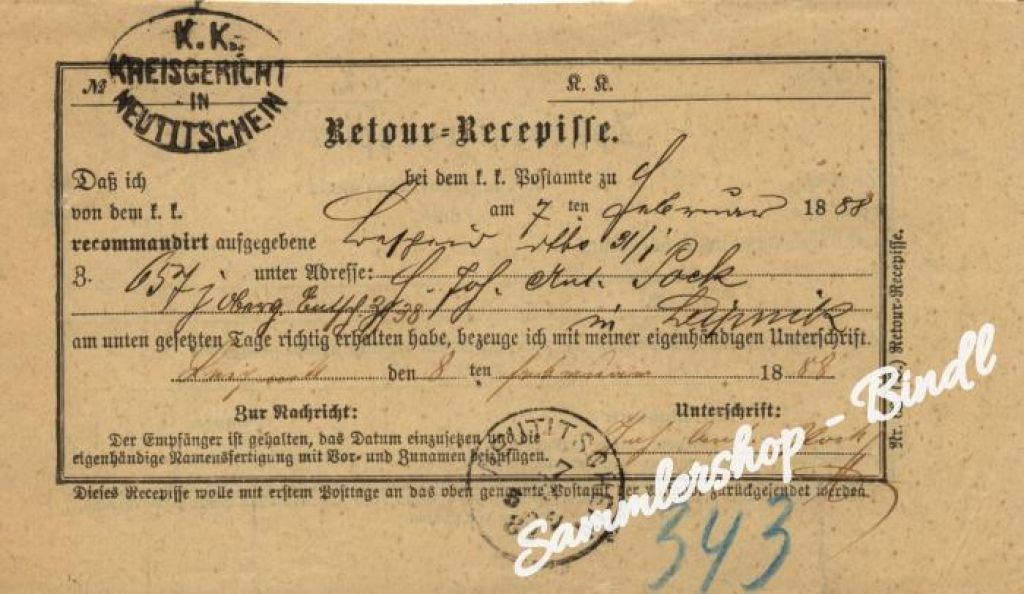 K. K.
KREISGERICHT
IN
NEUTITSCHEIN
№
K. K.
Retour-Recepisse.
Daß ich bei dem k. k. Postamte zu
von dem k. k. am 7 ten Februar 1888
recommandirt aufgegebene dtto 31/1
Z. 657 unter Adresse: H. Joh. Ant. Pock
in Leipnik
am unten gesetzten Tage richtig erhalten habe, bezeuge ich mit meiner eigenhändigen Unterschrift.
den 8 ten Februar 1888
Zur Nachricht:
Unterschrift:
Der Empfänger ist gehalten, das Datum einzusetzen und die
eigenhändige Namensfertigung mit Vor- und Zunamen beizufügen.
Dieses Recepisse wolle mit erstem Posttage an das oben genannte Postamt der zurückgesendet werden.
Retour-Recepisse.
NEUTITSCHEIN
7
343
Sammlershop - Bindl